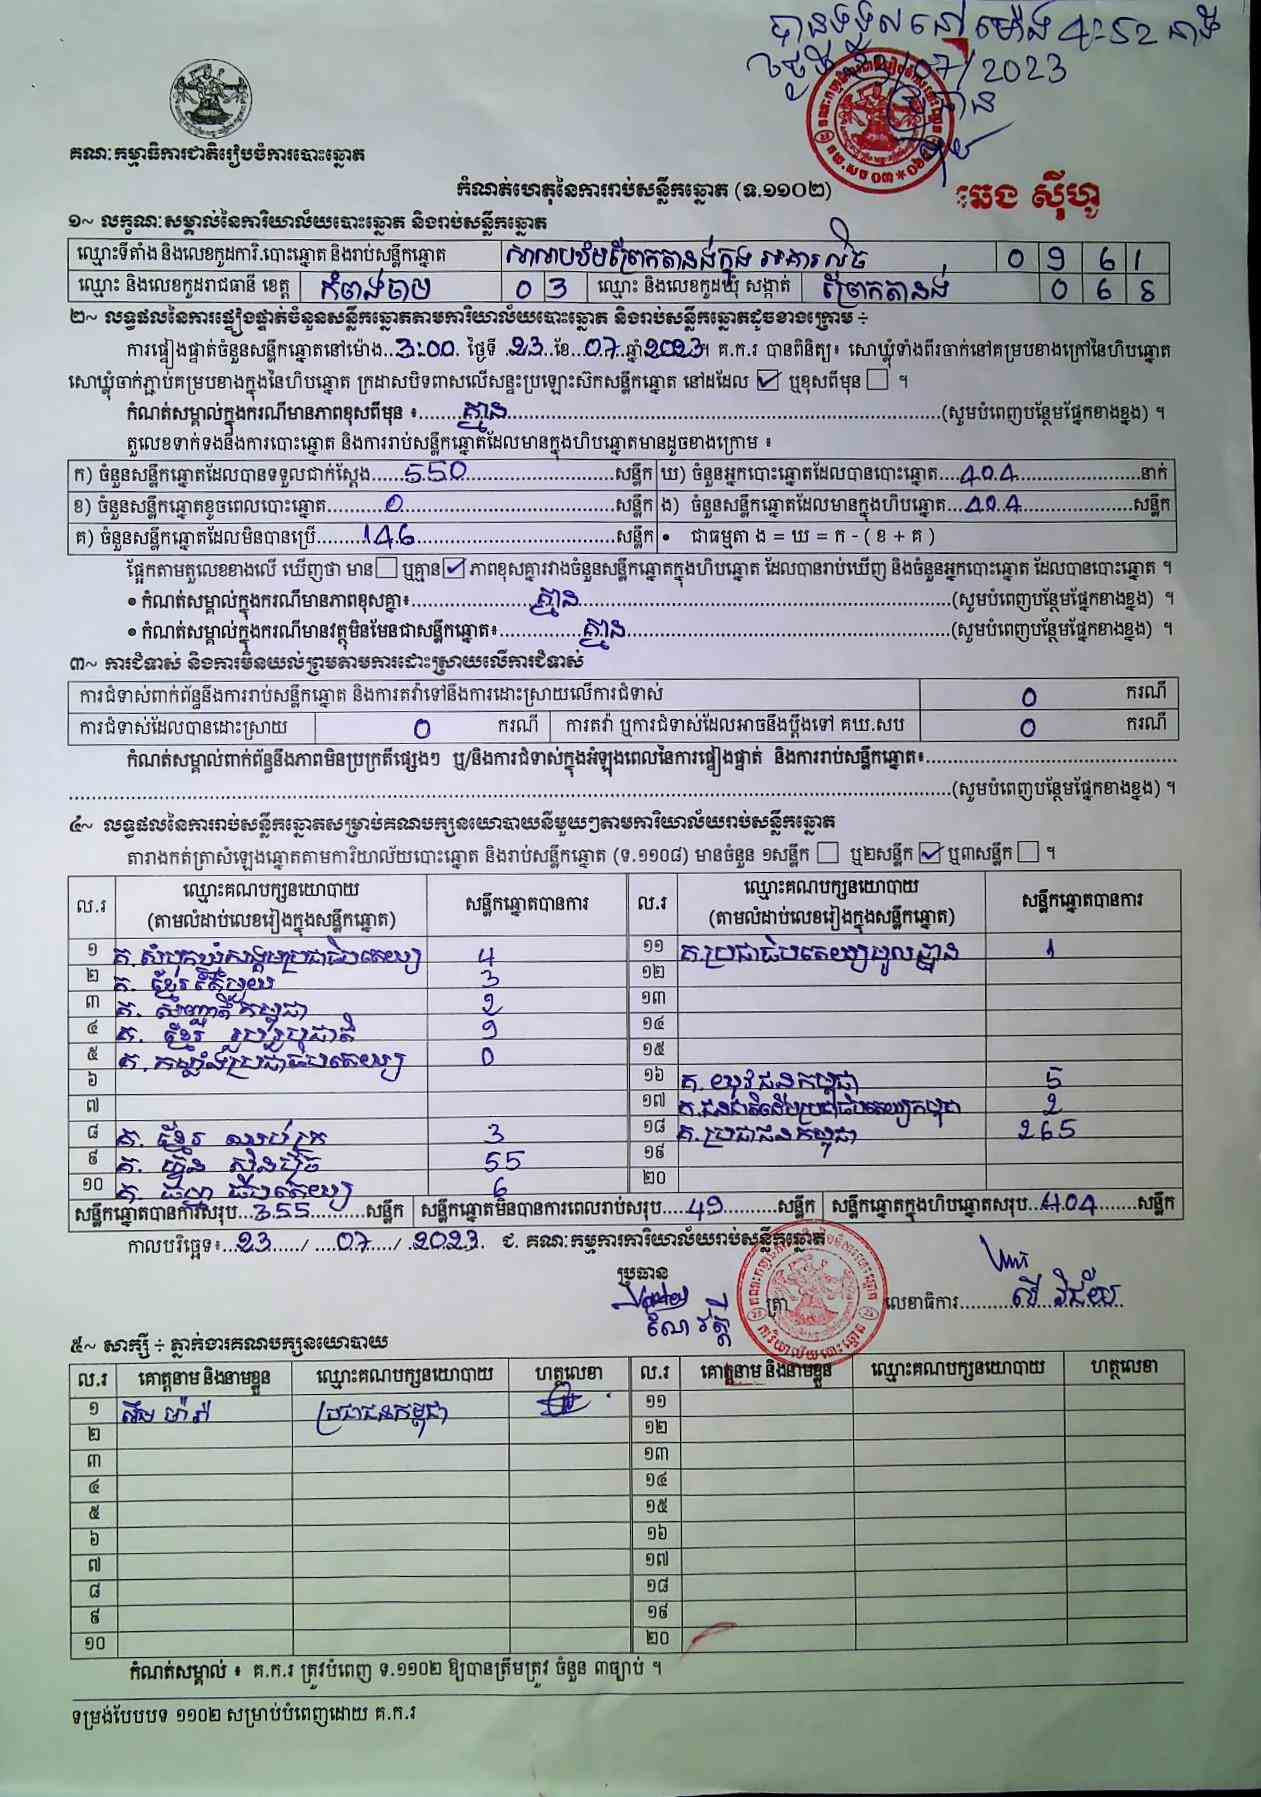 បានទទួលនៅម៉ោង 4:52 នាទី
ថ្ងៃទី 23/07/2023
ប្រធាន
ឆេង ស៊ីហូ
គណៈកម្មាធិការជាតិរៀបចំការបោះឆ្នោត
កំណត់ហេតុនៃការរាប់សន្លឹកឆ្នោត (ទ.១១០២)
១~ លក្ខណៈសម្គាល់នៃការិយាល័យបោះឆ្នោត និងរាប់សន្លឹកឆ្នោត
ឈ្មោះទីតាំង និងលេខកូដការិ.បោះឆ្នោត និងរាប់សន្លឹកឆ្នោត សាលាបឋមព្រែកតានង់ក្នុង អគារលិច 0 9 6 1
ឈ្មោះ និងលេខកូដរាជធានី ខេត្ត កំពង់ចាម 0 3 ឈ្មោះ និងលេខកូដឃុំ សង្កាត់ ព្រែកតានង់ 0 6 8
២~ លទ្ធផលនៃការផ្ទៀងផ្ទាត់ចំនួនសន្លឹកឆ្នោតតាមការិយាល័យបោះឆ្នោត និងរាប់សន្លឹកឆ្នោតដូចខាងក្រោម ÷
ការផ្ទៀងផ្ទាត់ចំនួនសន្លឹកឆ្នោតនៅម៉ោង..3:00. ថ្ងៃទី .23..ខែ..07..ឆ្នាំ2023។ គ.ក.រ បានពិនិត្យ៖ សោឃ្លុំទាំងពីរចាក់នៅគម្របខាងក្រៅនៃហិបឆ្នោត
សោឃ្លុំចាក់ភ្ជាប់គម្របខាងក្នុងនៃហិបឆ្នោត ក្រដាសបិទពាសលើសន្ទះប្រឡោះស៊កសន្លឹកឆ្នោត នៅដដែល ☑ ឬខុសពីមុន ☐ ។
កំណត់សម្គាល់ក្នុងករណីមានភាពខុសពីមុន ៖........គ្មាន........(សូមបំពេញបន្ថែមផ្នែកខាងខ្នង) ។
តួលេខទាក់ទងនឹងការបោះឆ្នោត និងការរាប់សន្លឹកឆ្នោតដែលមានក្នុងហិបឆ្នោតមានដូចខាងក្រោម ៖
ក) ចំនួនសន្លឹកឆ្នោតដែលបានទទួលជាក់ស្តែង......550......សន្លឹក ឃ) ចំនួនអ្នកបោះឆ្នោតដែលបានបោះឆ្នោត....404......នាក់
ខ) ចំនួនសន្លឹកឆ្នោតខូចពេលបោះឆ្នោត......0......សន្លឹក ង) ចំនួនសន្លឹកឆ្នោតដែលមានក្នុងហិបឆ្នោត...404......សន្លឹក
គ) ចំនួនសន្លឹកឆ្នោតដែលមិនបានប្រើ......146......សន្លឹក • ជាធម្មតា ង = ឃ = ក - ( ខ + គ )
ផ្អែកតាមតួលេខខាងលើ ឃើញថា មាន☐ ឬគ្មាន☑ ភាពខុសគ្នារវាងចំនួនសន្លឹកឆ្នោតក្នុងហិបឆ្នោត ដែលបានរាប់ឃើញ និងចំនួនអ្នកបោះឆ្នោត ដែលបានបោះឆ្នោត ។
• កំណត់សម្គាល់ក្នុងករណីមានភាពខុសគ្នា៖........គ្មាន........(សូមបំពេញបន្ថែមផ្នែកខាងខ្នង) ។
• កំណត់សម្គាល់ក្នុងករណីមានវត្ថុមិនមែនជាសន្លឹកឆ្នោត៖........គ្មាន........(សូមបំពេញបន្ថែមផ្នែកខាងខ្នង) ។
៣~ ការជំទាស់ និងការមិនយល់ព្រមតាមការដោះស្រាយលើការជំទាស់
ការជំទាស់ពាក់ព័ន្ធនឹងការរាប់សន្លឹកឆ្នោត និងការតវ៉ាទៅនឹងការដោះស្រាយលើការជំទាស់ 0 ករណី
ការជំទាស់ដែលបានដោះស្រាយ 0 ករណី ការតវ៉ា ឬការជំទាស់ដែលអាចនឹងប្តឹងទៅ គឃ.សប 0 ករណី
កំណត់សម្គាល់ពាក់ព័ន្ធនឹងភាពមិនប្រក្រតីផ្សេងៗ ឬ/និងការជំទាស់ក្នុងអំឡុងពេលនៃការផ្ទៀងផ្ទាត់ និងការរាប់សន្លឹកឆ្នោត៖........
........(សូមបំពេញបន្ថែមផ្នែកខាងខ្នង) ។
៤~ លទ្ធផលនៃការរាប់សន្លឹកឆ្នោតសម្រាប់គណបក្សនយោបាយនីមួយៗតាមការិយាល័យរាប់សន្លឹកឆ្នោត
តារាងកត់ត្រាសំឡេងឆ្នោតតាមការិយាល័យបោះឆ្នោត និងរាប់សន្លឹកឆ្នោត (ទ.១១០៨) មានចំនួន ១សន្លឹក ☐ ឬ២សន្លឹក ☑ ឬ៣សន្លឹក ☐ ។
ល.រ ឈ្មោះគណបក្សនយោបាយ (តាមលំដាប់លេខរៀងក្នុងសន្លឹកឆ្នោត) សន្លឹកឆ្នោតបានការ ល.រ ឈ្មោះគណបក្សនយោបាយ (តាមលំដាប់លេខរៀងក្នុងសន្លឹកឆ្នោត) សន្លឹកឆ្នោតបានការ
១ គ.សំបុកឃ្មុំសង្គមប្រជាធិបតេយ្យ 4 ១១ គ.ប្រជាធិបតេយ្យមូលដ្ឋាន 1
២ គ. ខ្មែរតែមួយ 3 ១២
៣ គ. សញ្ជាតិកម្ពុជា 2 ១៣
៤ គ. ខ្មែរ រួបរួមជាតិ 9 ១៤
៥ គ.កម្លាំងប្រជាធិបតេយ្យ 0 ១៥
៦ ១៦ គ. យុវជនកម្ពុជា 5
៧ ១៧ គ.ជនជាតិដើមប្រជាធិបតេយ្យកម្ពុជា 2
៨ គ. ខ្មែរ ឈប់ក្រ 3 ១៨ គ.ប្រជាជនកម្ពុជា 265
៩ គ. ហ៊្វុន ស៊ិនប៉ិច 55 ១៩
១០ គ. ធម្មាធិបតេយ្យ 6 ២០
សន្លឹកឆ្នោតបានការសរុប..355......សន្លឹក សន្លឹកឆ្នោតមិនបានការពេលរាប់សរុប....49......សន្លឹក សន្លឹកឆ្នោតក្នុងហិបឆ្នោតសរុប..404......សន្លឹក
កាលបរិច្ឆេទ៖..23...../....07...../..2023. ជ. គណៈកម្មការការិយាល័យរាប់សន្លឹកឆ្នោត
ប្រធាន
ត្រា
លេខាធិការ........លី វិជ័យ
៥~ សាក្សី ÷ ភ្នាក់ងារគណបក្សនយោបាយ
ល.រ គោត្តនាម និងនាមខ្លួន ឈ្មោះគណបក្សនយោបាយ ហត្ថលេខា ល.រ គោត្តនាម និងនាមខ្លួន ឈ្មោះគណបក្សនយោបាយ ហត្ថលេខា
១ ស៊ឹម ម៉ារ៉ា ប្រជាជនកម្ពុជា ១១
២ ១២
៣ ១៣
៤ ១៤
៥ ១៥
៦ ១៦
៧ ១៧
៨ ១៨
៩ ១៩
១០ ២០
កំណត់សម្គាល់ ៖ គ.ក.រ ត្រូវបំពេញ ទ.១១០២ ឱ្យបានត្រឹមត្រូវ ចំនួន ៣ច្បាប់ ។
ទម្រង់បែបបទ ១១០២ សម្រាប់បំពេញដោយ គ.ក.រ